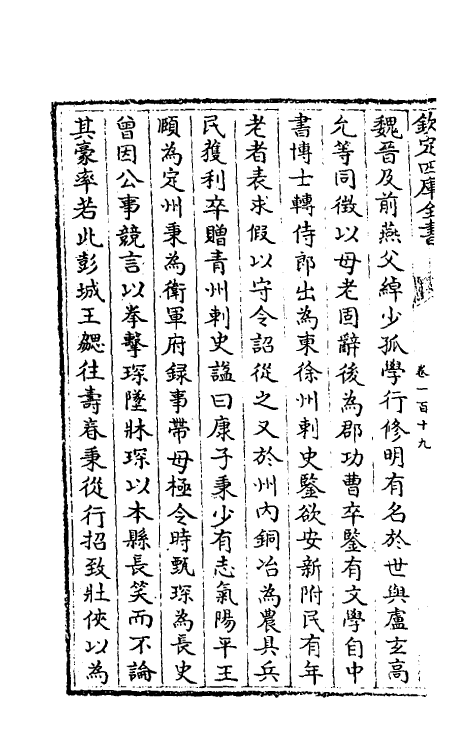 欽定四庫全書
卷一百十九
魏晉及前燕父綽少孤學行修明有名於世與盧玄高
允等同徵以母老固辭後為郡功曹卒鑒有文學自中
書博士轉侍郎出為東徐州刺史鑒欲安新附民有年
老者表求假以守令詔從之又於州內銅冶為農具兵
民獲利卒贈青州刺史諡曰康子秉少有志氣陽平王
頤為定州秉為衛軍府録事帶母極令時甄琛為長史
曾因公事競言以拳擊琛墜牀琛以本縣長笑而不論
其豪率若此彭城王勰往壽春秉從行招致壯俠以為